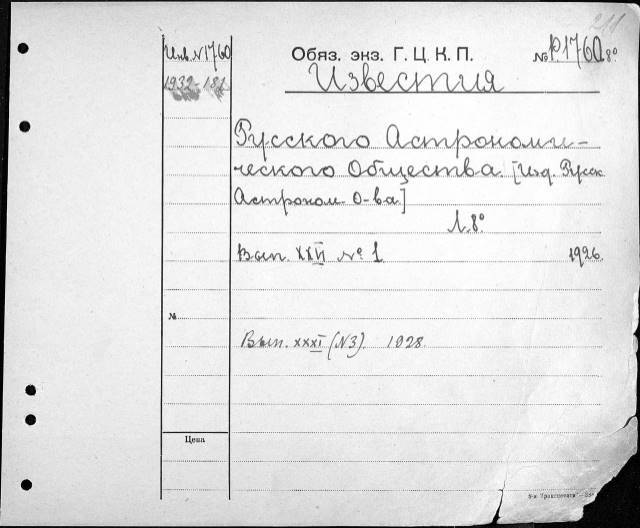 Инв. N 1760
1932-
Обяз. экз. Г. Ц. К. П.
№ Р.1760 8°
Известия
Русского Астрономи-
ческого Общества. [Изд. Русск
Астроном. О-ва]
Л. 8°
Вып. XXVI № 1. 1926.
№
Вып. XXXI (N3). 1928.
Цена